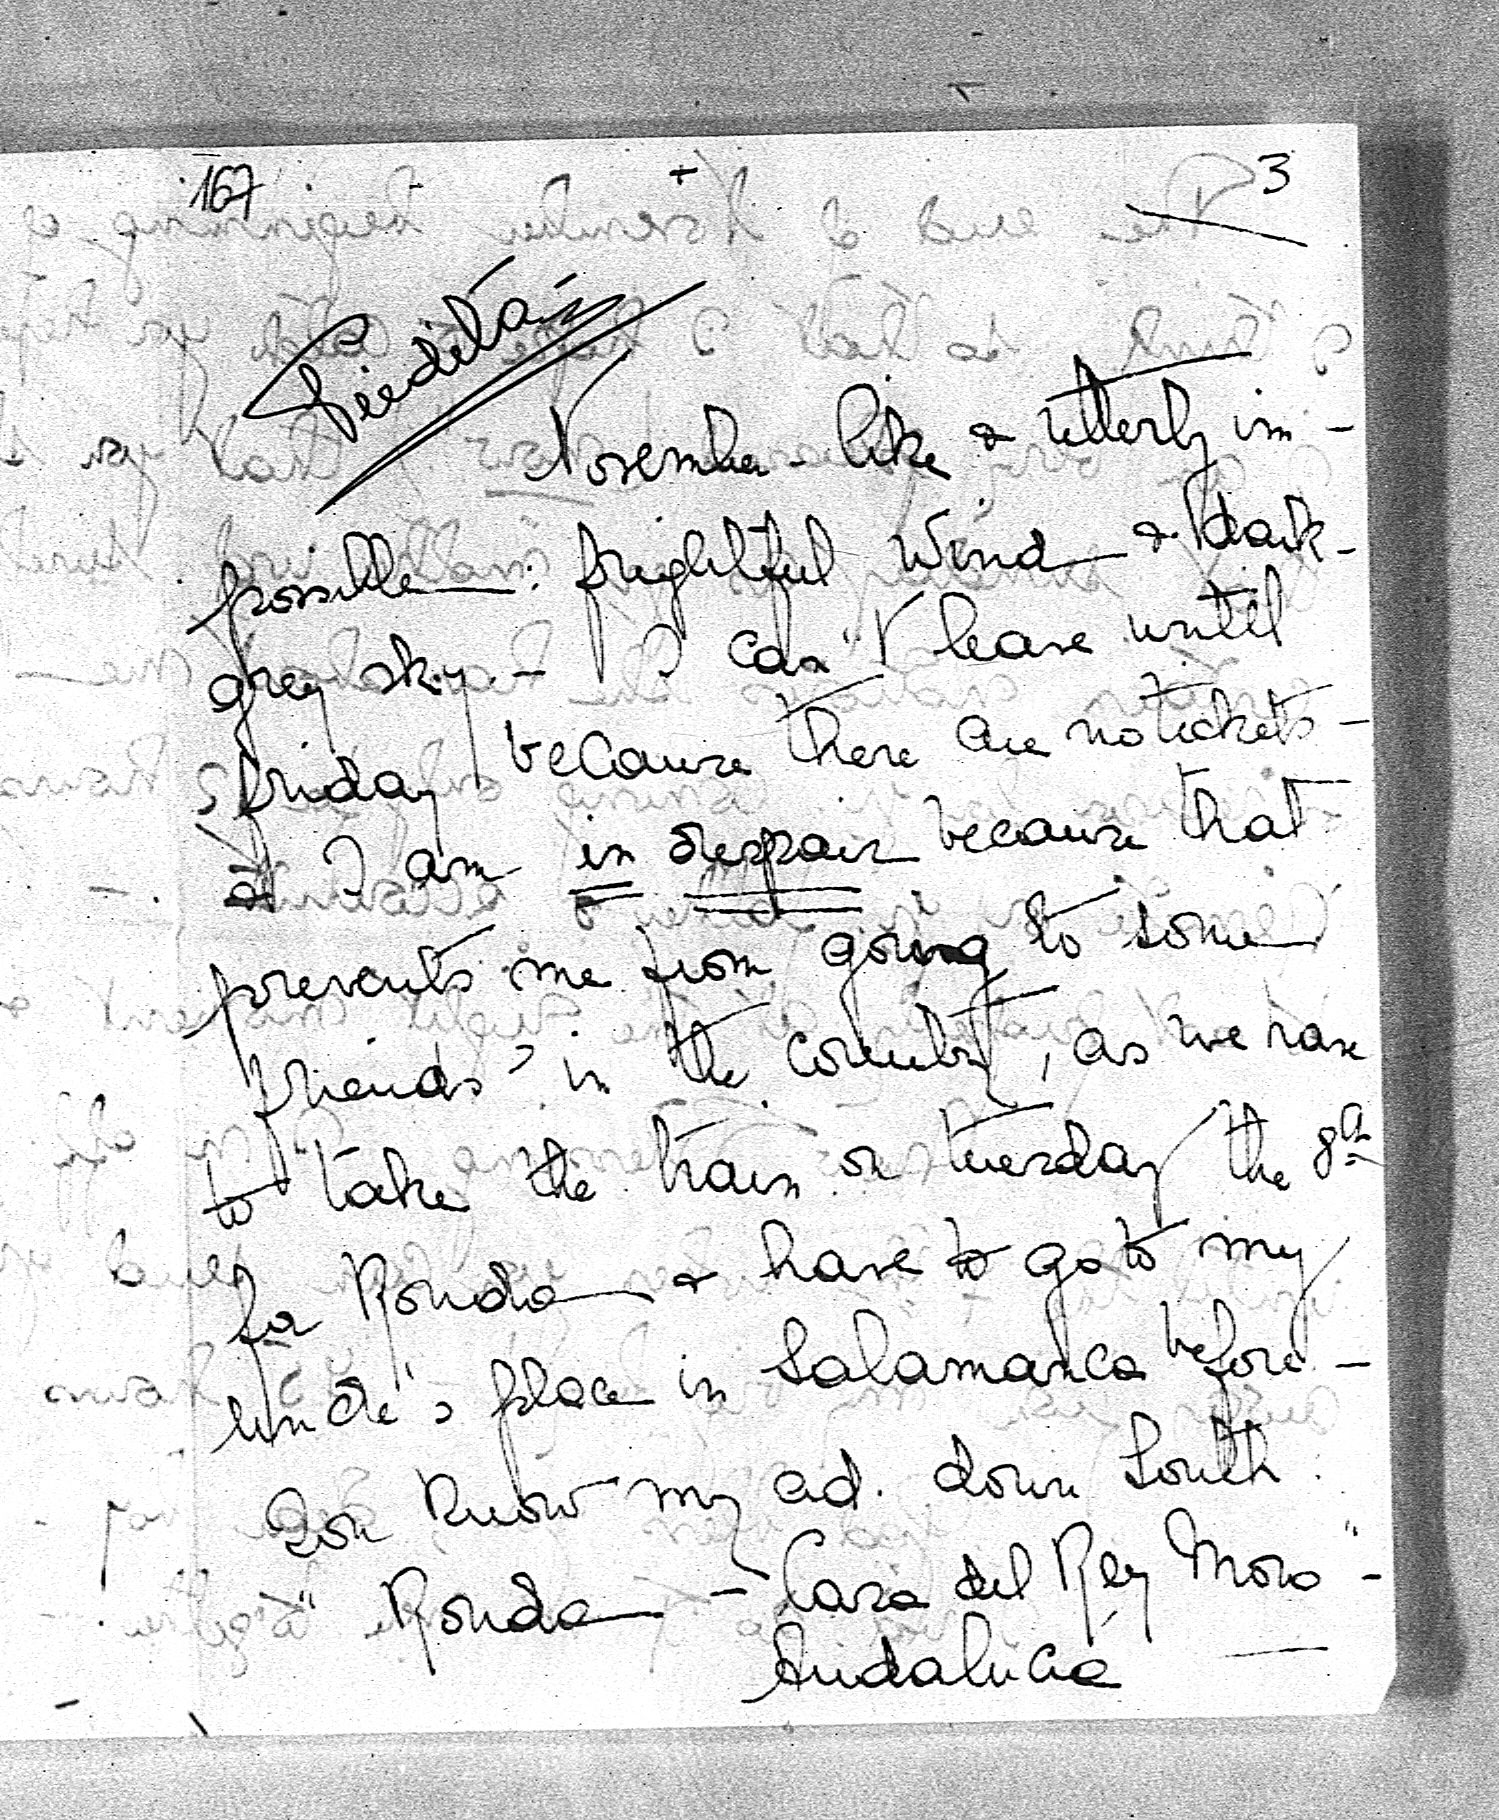 167
3
Piedita
November-like & utterly im-
possible: frightful wind & dark-
grey sky. - I can't leave until
friday because there are no tickets -
& I am in despair because that
prevents me from going to some
friends' in the country, as we have
to take the train on tuesday the 8th
for Ronda & have to go to my
uncle's place in Salamanca before -
You know my ad. down South.
"Ronda - Casa del Rey Moro" -
Andalucia